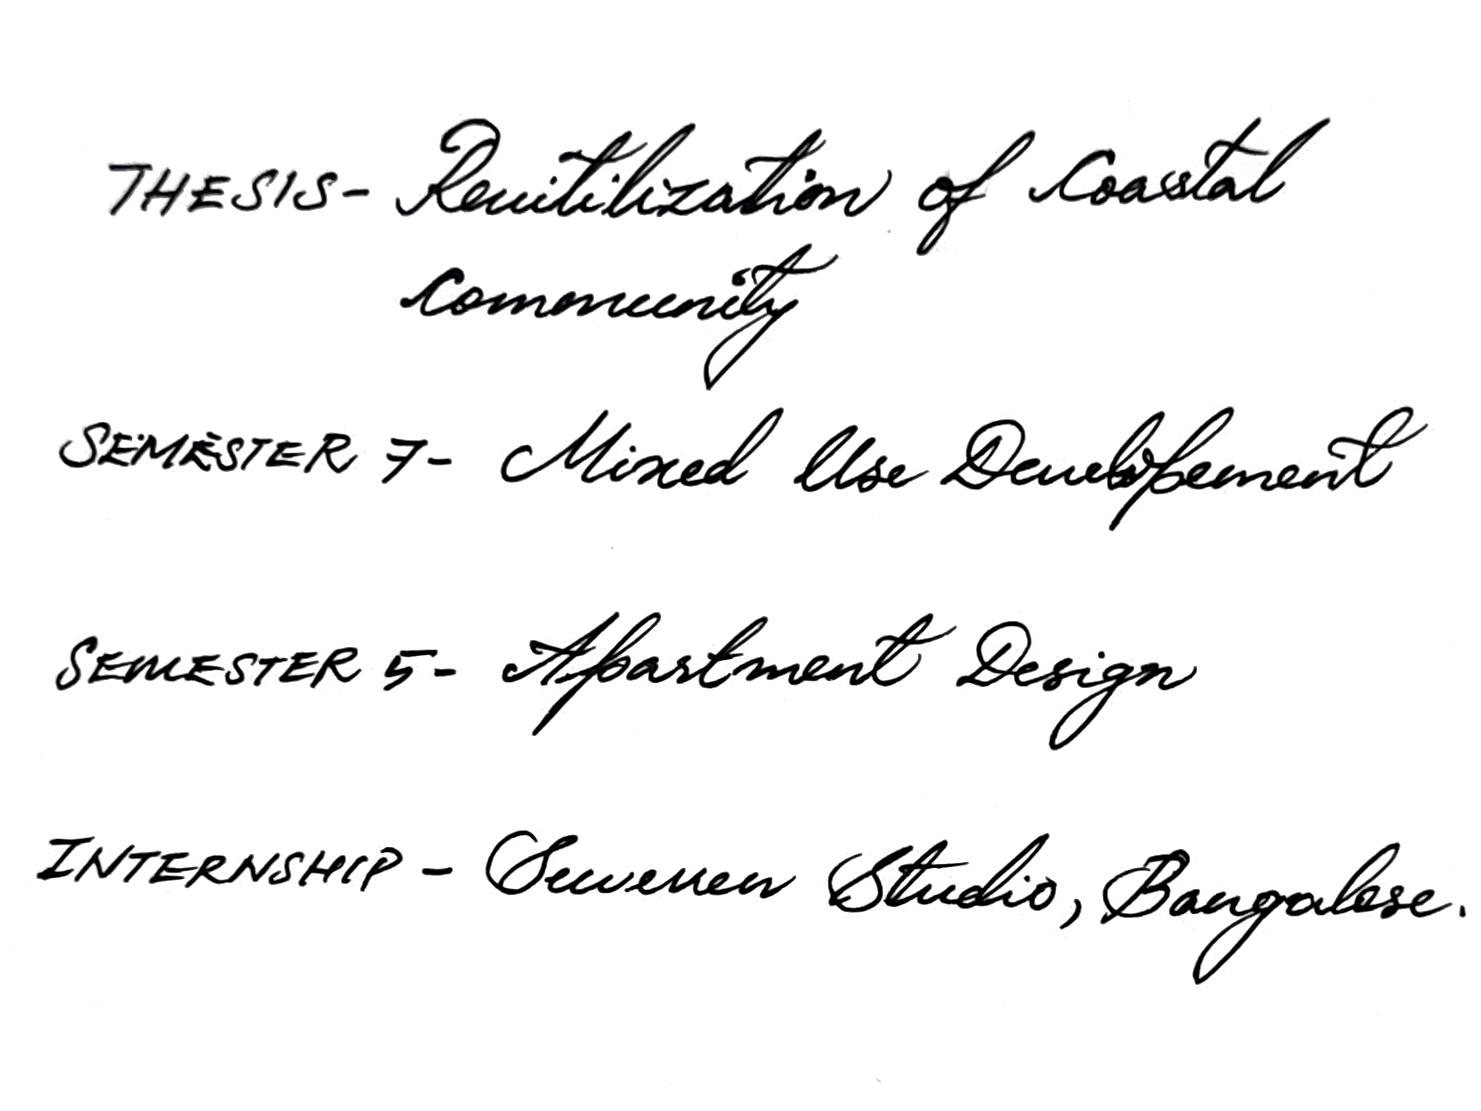 THESIS- Revitilization of Coastal
Community
SEMESTER 7- Mixed Use Developement
SEMESTER 5- Apartment Design
INTERNSHIP - Studio, Bangalore.